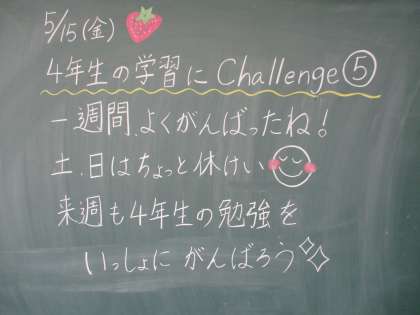 5/15(金)
4年生の学習にChallenge⑤
一週間、よくがんばったね!
土、日はちょっと休けい
来週も4年生の勉強を
いっしょに がんばろう